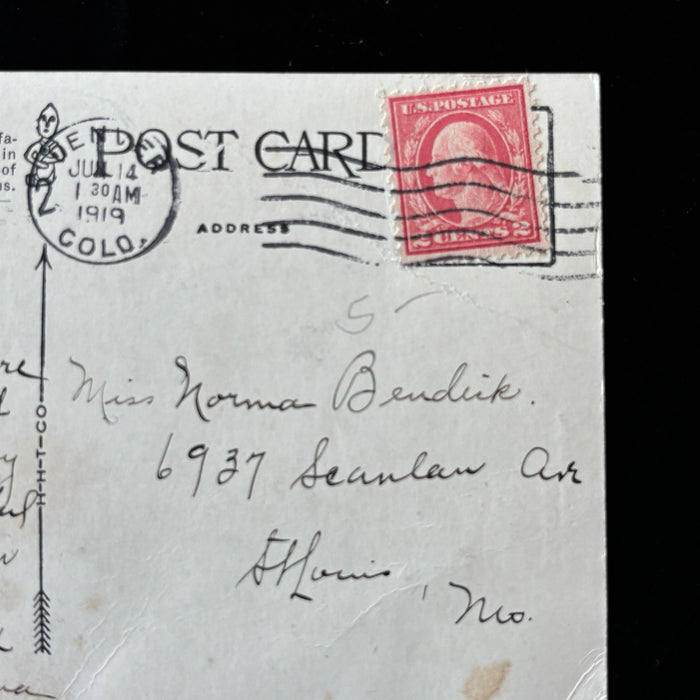 fa-
in
of
s.
DENVER
COLO.
JUL 14
1 30 AM
1919
2
POST CARD
ADDRESS
U.S. POSTAGE
2 CENTS 2
H-H-T-CO
5
Miss Norma Bendick.
6937 Scanlan Ave
St Louis, Mo.